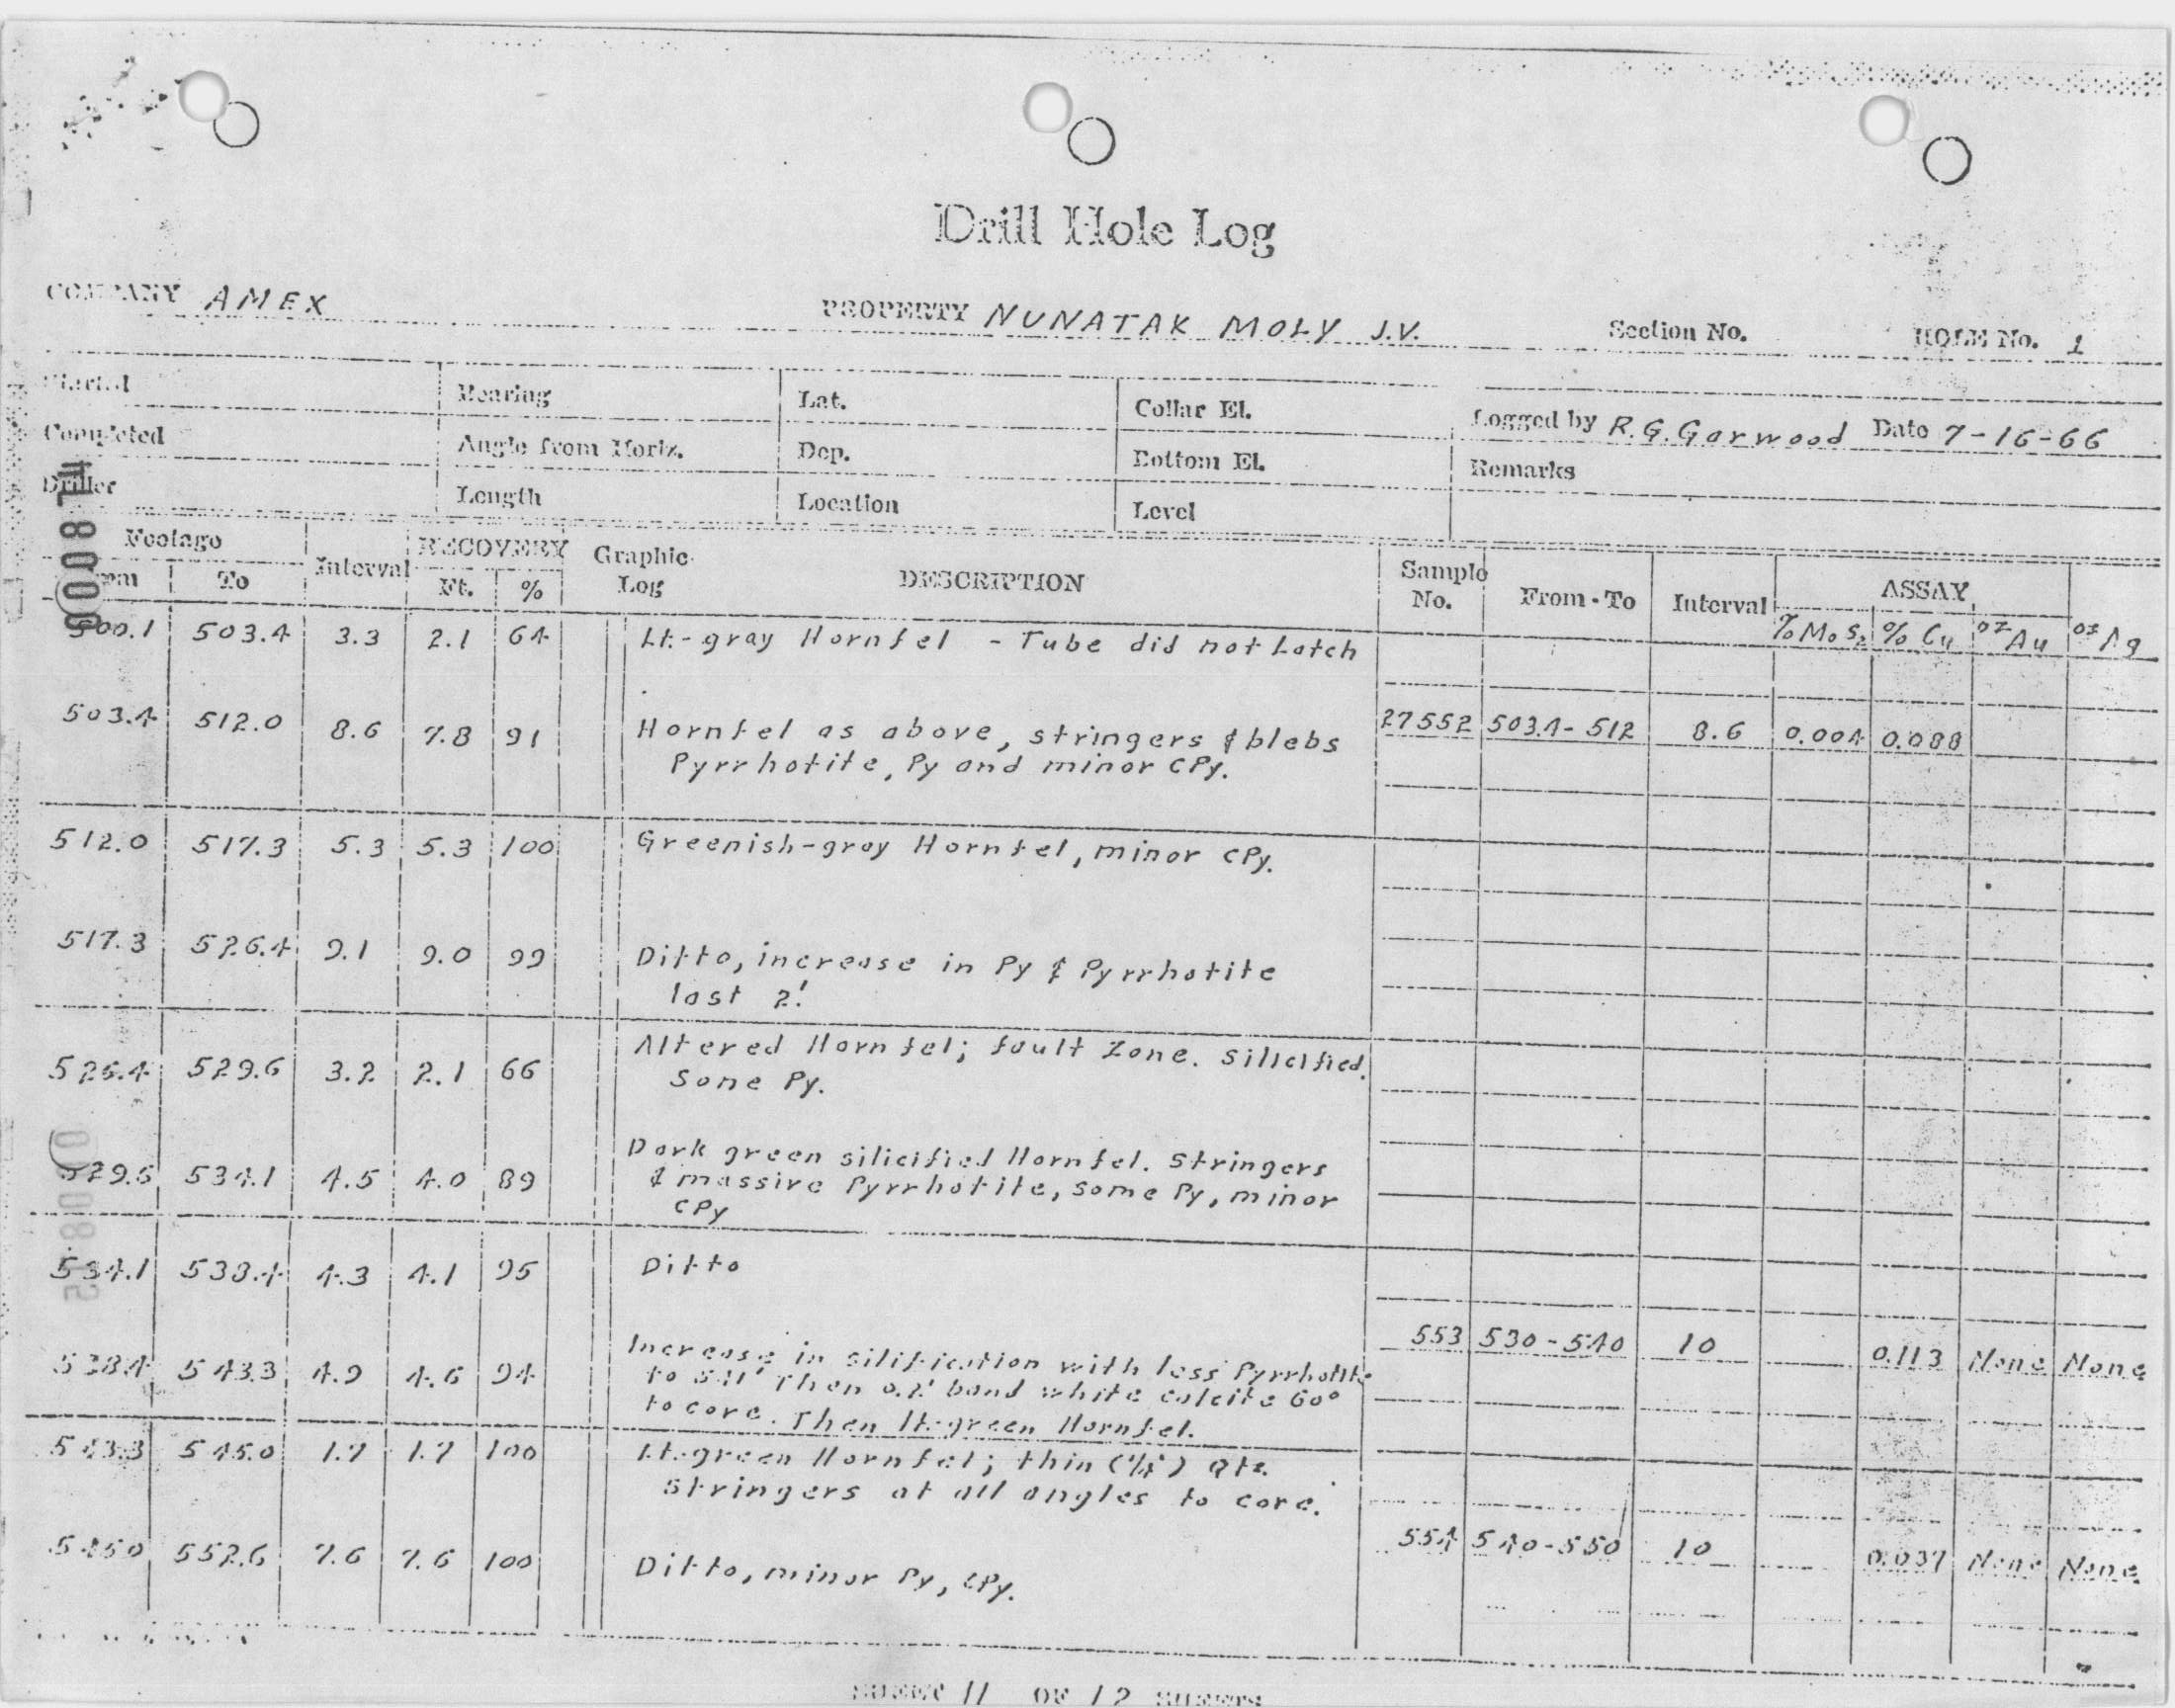 Drill Hole Log
COMPANY AMEX PROPERTY NUNATAK MOLY J.V. Section No. HOLE No. 1
Started Bearing Lat. Collar El. Logged by R.G. Garwood Date 7-16-66
Completed Angle from Horiz. Dep. Bottom El. Remarks
Driller Length Location Level
Footage Interval RECOVERY Graphic Log DESCRIPTION Sample No. From-To Interval ASSAY
To Ft. % % MoS2 % Cu oz Au oz Ag
500.1 503.4 3.3 2.1 64 Lt.-gray Hornfel - Tube did not Latch
503.4 512.0 8.6 7.8 91 Hornfel as above, stringers & blebs 27552 503.4-512 8.6 0.004 0.088
Pyrrhotite, Py and minor CPy.
512.0 517.3 5.3 5.3 100 Greenish-gray Hornfel, minor CPy.
517.3 526.4 9.1 9.0 99 Ditto, increase in Py & Pyrrhotite
last 2'.
526.4 529.6 3.2 2.1 66 Altered Hornfel; fault Zone. Silicified.
Some Py.
529.6 534.1 4.5 4.0 89 Dark green silicified Hornfel. Stringers
& massive Pyrrhotite, some Py, minor
CPy
534.1 538.4 4.3 4.1 95 Ditto
553 530-540 10 0.113 None None
538.4 543.3 4.9 4.6 94 Increase in silification with less Pyrrhotite
to 541' Then 0.2' band white calcite 60°
to core. Then lt.-green Hornfel.
543.3 545.0 1.7 1.7 100 Lt.-green Hornfel; thin (1/4") Qtz.
Stringers at all angles to core.
545.0 552.6 7.6 7.6 100 Ditto, minor Py, CPy. 554 540-550 10 0.037 None None
SHEET 11 OF 12 SHEETS